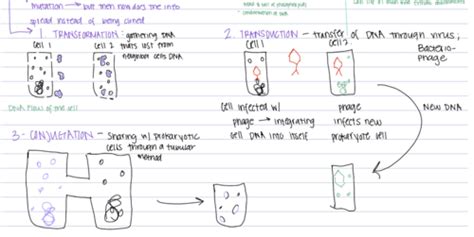 mutation → but then non dies one into
spread instead of being cured
1. TRANSFORMATION: gathering DNA
that's lost from
neighbor cells DNA
cell 1
cell 2
DNA flows of one cell
2. TRANSDUCTION - transfer of DNA through virus;
Bacterio-
phage
cell 1
cell 2
cell infected w/
phage → integrating
cell DNA into itself
phage
infects new
prokaryote cell
NEW DNA
3. CONJUGATION - sharing w/ prokaryotic
cells through a tubular